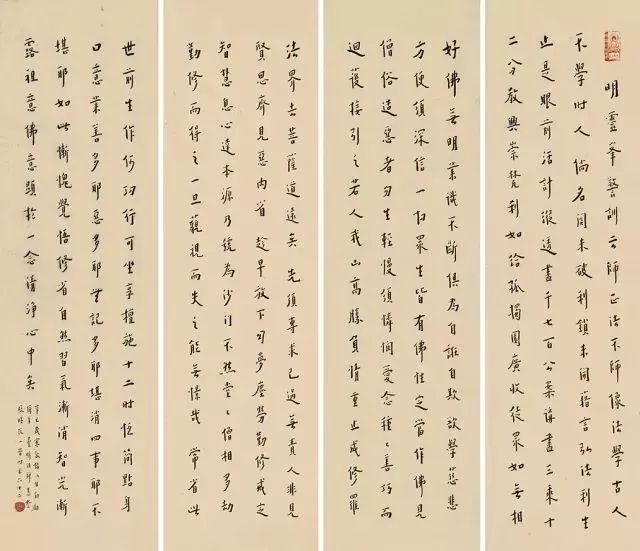 明靈峯警訓云師正法不師像法學古人
不學时人倘名關未破利鎖未開藉言弘法利生
止是眼前活計縱透盡千七百公案講盡三乘十
二分教興崇梵刹如給孤獨園廣收徒眾如無相
好佛無明業識不斷俱為自誑自欺欲學慈悲
方便須深信一切眾生皆有佛性定當作佛見
僧俗造惡者勿生輕慢須憐憫愛念種〻善巧而
迴護接引之若人我山高勝負情重止成修羅
法界去菩薩道遠矣先須專求己過無責人非見
賢思齊見惡內省趁早放下夢塵勞勤修戒定
智慧息心達本源乃號為沙门不然堂〻僧相多劫
勤修而得之一旦藐視而失之能無懍哉常省此
世前生作何功行可坐享檀施十二时簡點身
口意業善多耶惡多耶無記多耶堪消四事耶不
堪耶如此慚愧覺悟修省自然習氣漸消智光漸
露祖意佛意顯於一念清淨心中矣